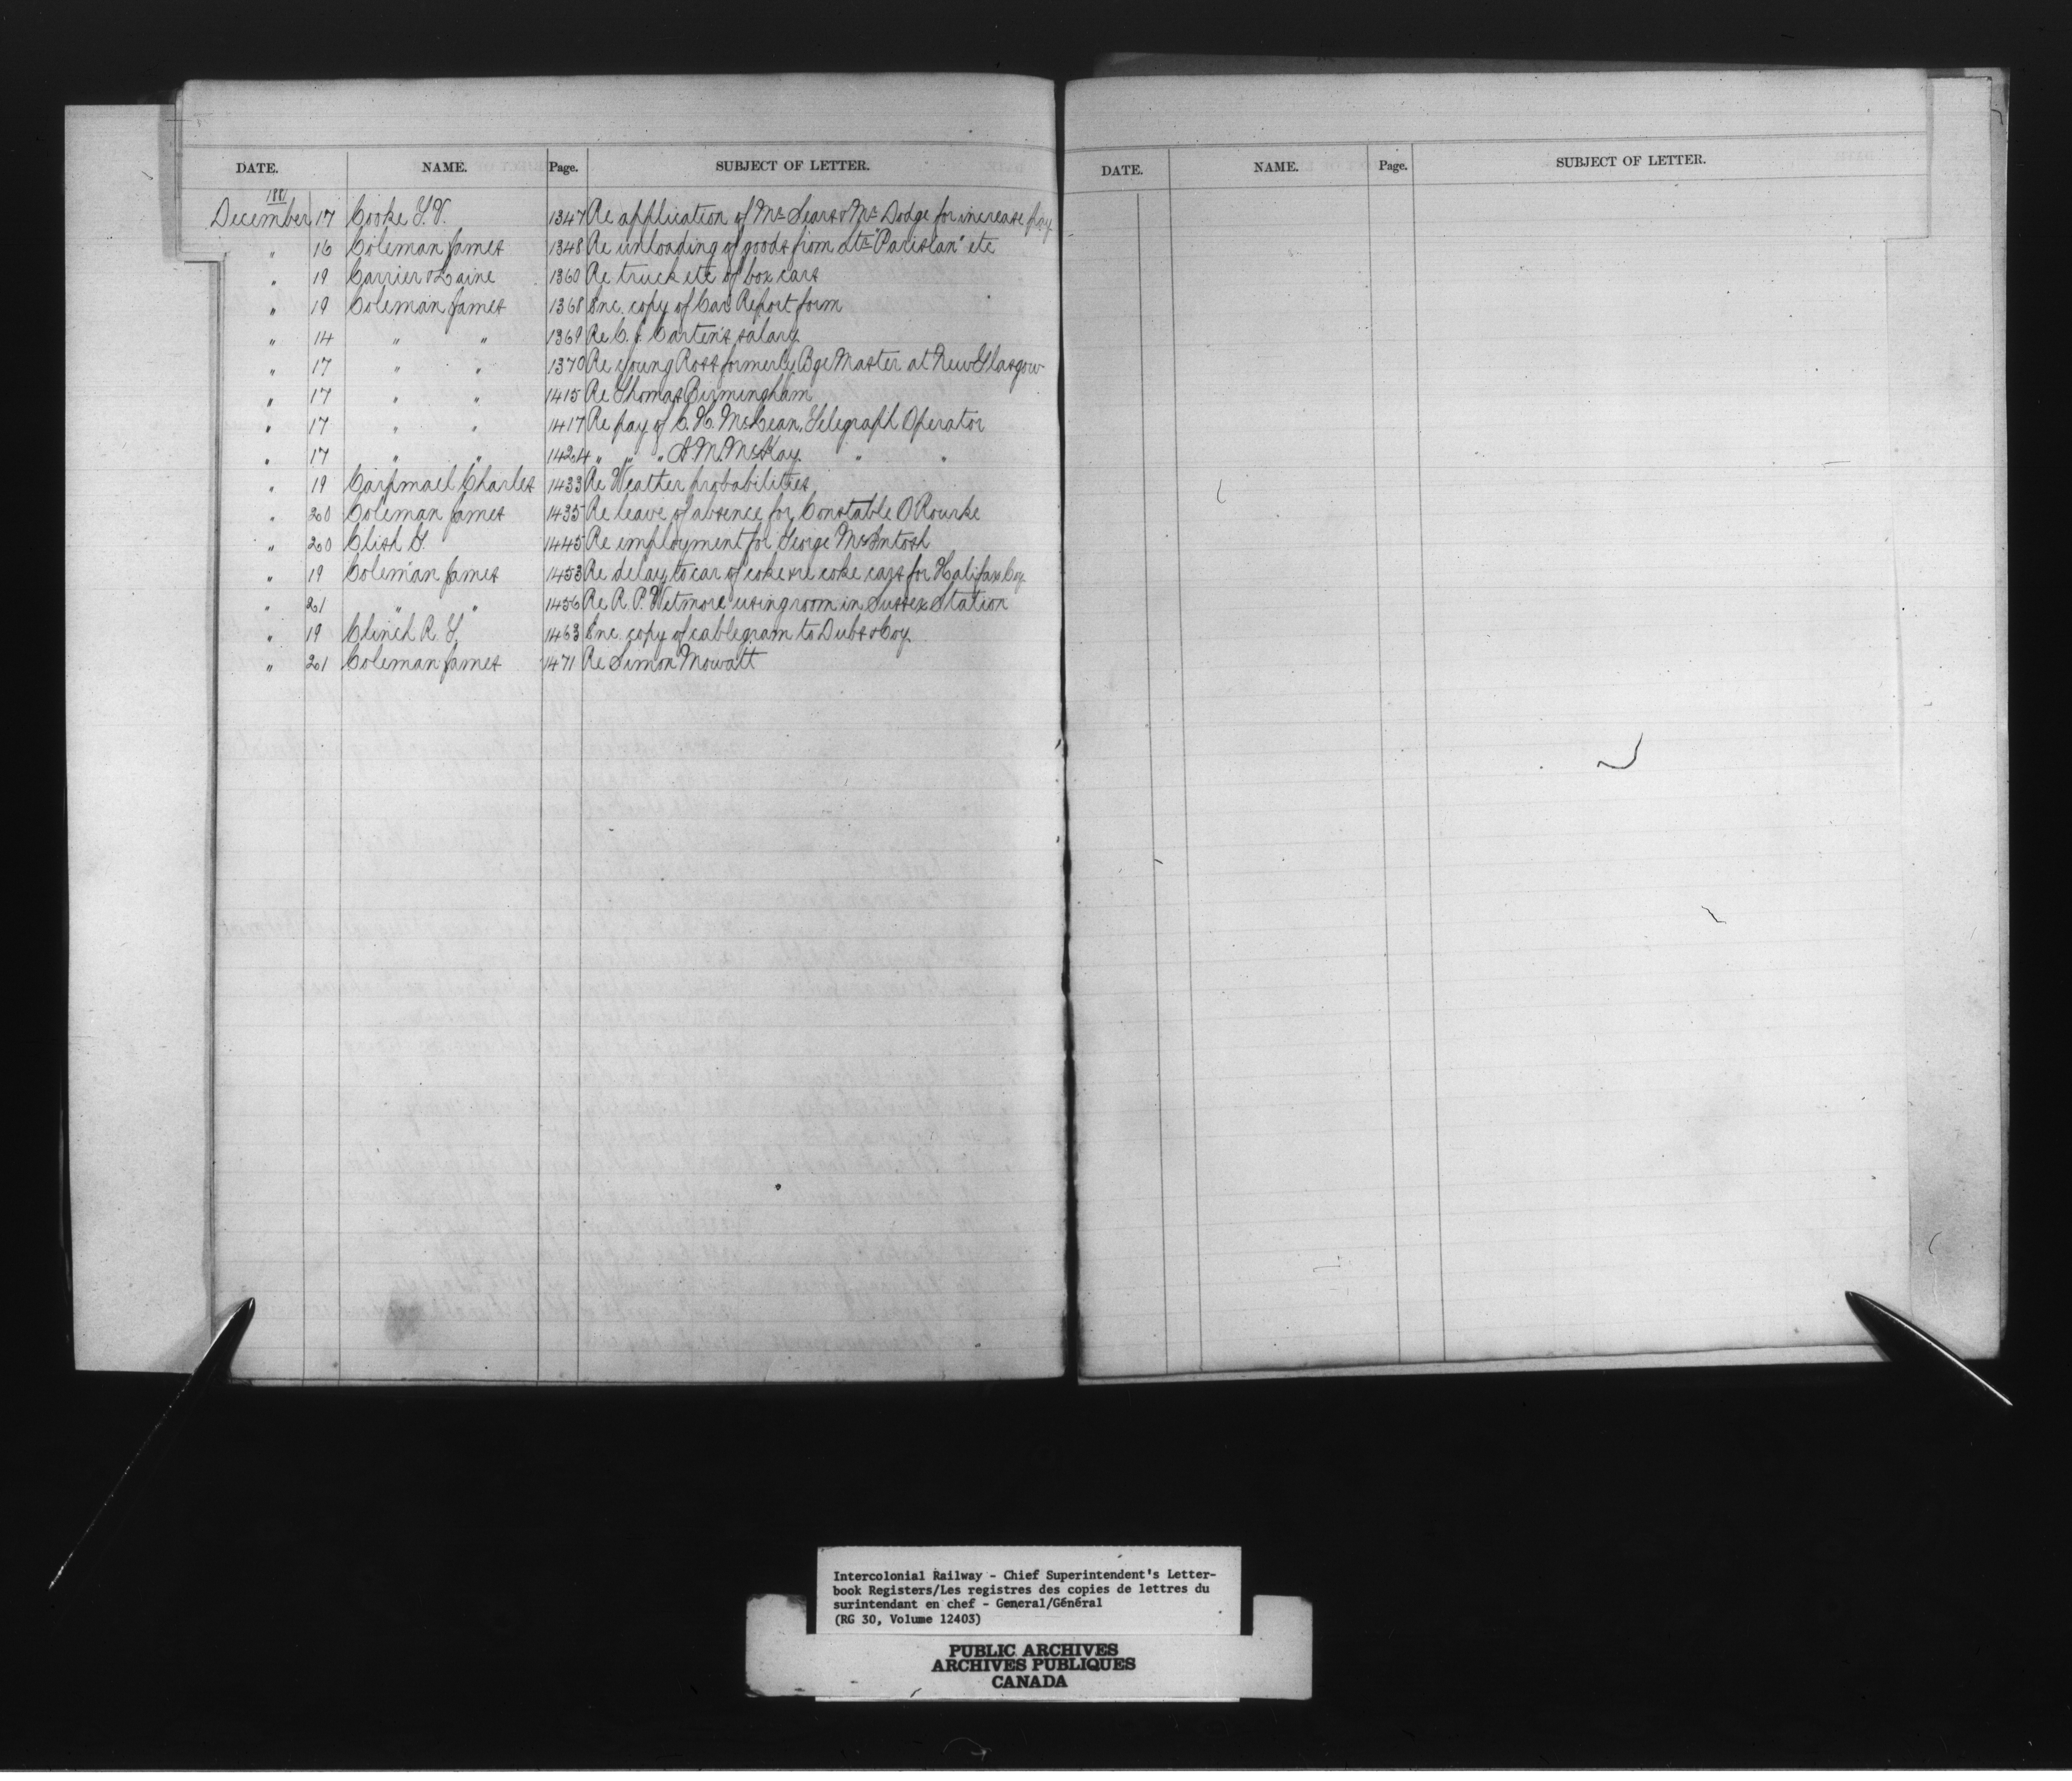 DATE. NAME. Page. SUBJECT OF LETTER.
1881
December 17 Cooke T. V. 1347 Re application of Mr Sears & Mr Dodge for increase pay
" 16 Coleman James 1348 Re unloading of goods from Str "Parisian" etc
" 19 Carrier & Laine 1360 Re truck etc of box cars
" 19 Coleman James 1368 Enc. copy of Car Report form
" 14 " " 1369 Re C. J. Carten's salary
" 17 " " 1370 Re young Ross formerly Bge Master at New Glasgow
" 17 " " 1415 Re Thomas Birmingham
" 17 " " 1417 Re pay of C. H. McLean, Telegraph Operator
" 17 " " 1424 " " " A. M. McKay " "
" 19 Carpmael Charles 1433 Re Weather probabilities
" 20 Coleman James 1435 Re leave of absence for Constable O Rourke
" 20 Clish G. 1445 Re employment for George McIntosh
" 19 Coleman James 1453 Re delay to car of coke & re coke cars for Halifax Coy
" 21 " " 1456 Re R. P. Wetmore using room in Sussex Station
" 19 Clinch R. T. 1463 Enc copy of cablegram to Dubs & Coy.
" 21 Coleman James 1471 Re Simon Mowatt
DATE. NAME. Page. SUBJECT OF LETTER.
Intercolonial Railway - Chief Superintendent's Letter-
book Registers/Les registres des copies de lettres du
surintendant en chef - General/Général
(RG 30, Volume 12403)
PUBLIC ARCHIVES
ARCHIVES PUBLIQUES
CANADA